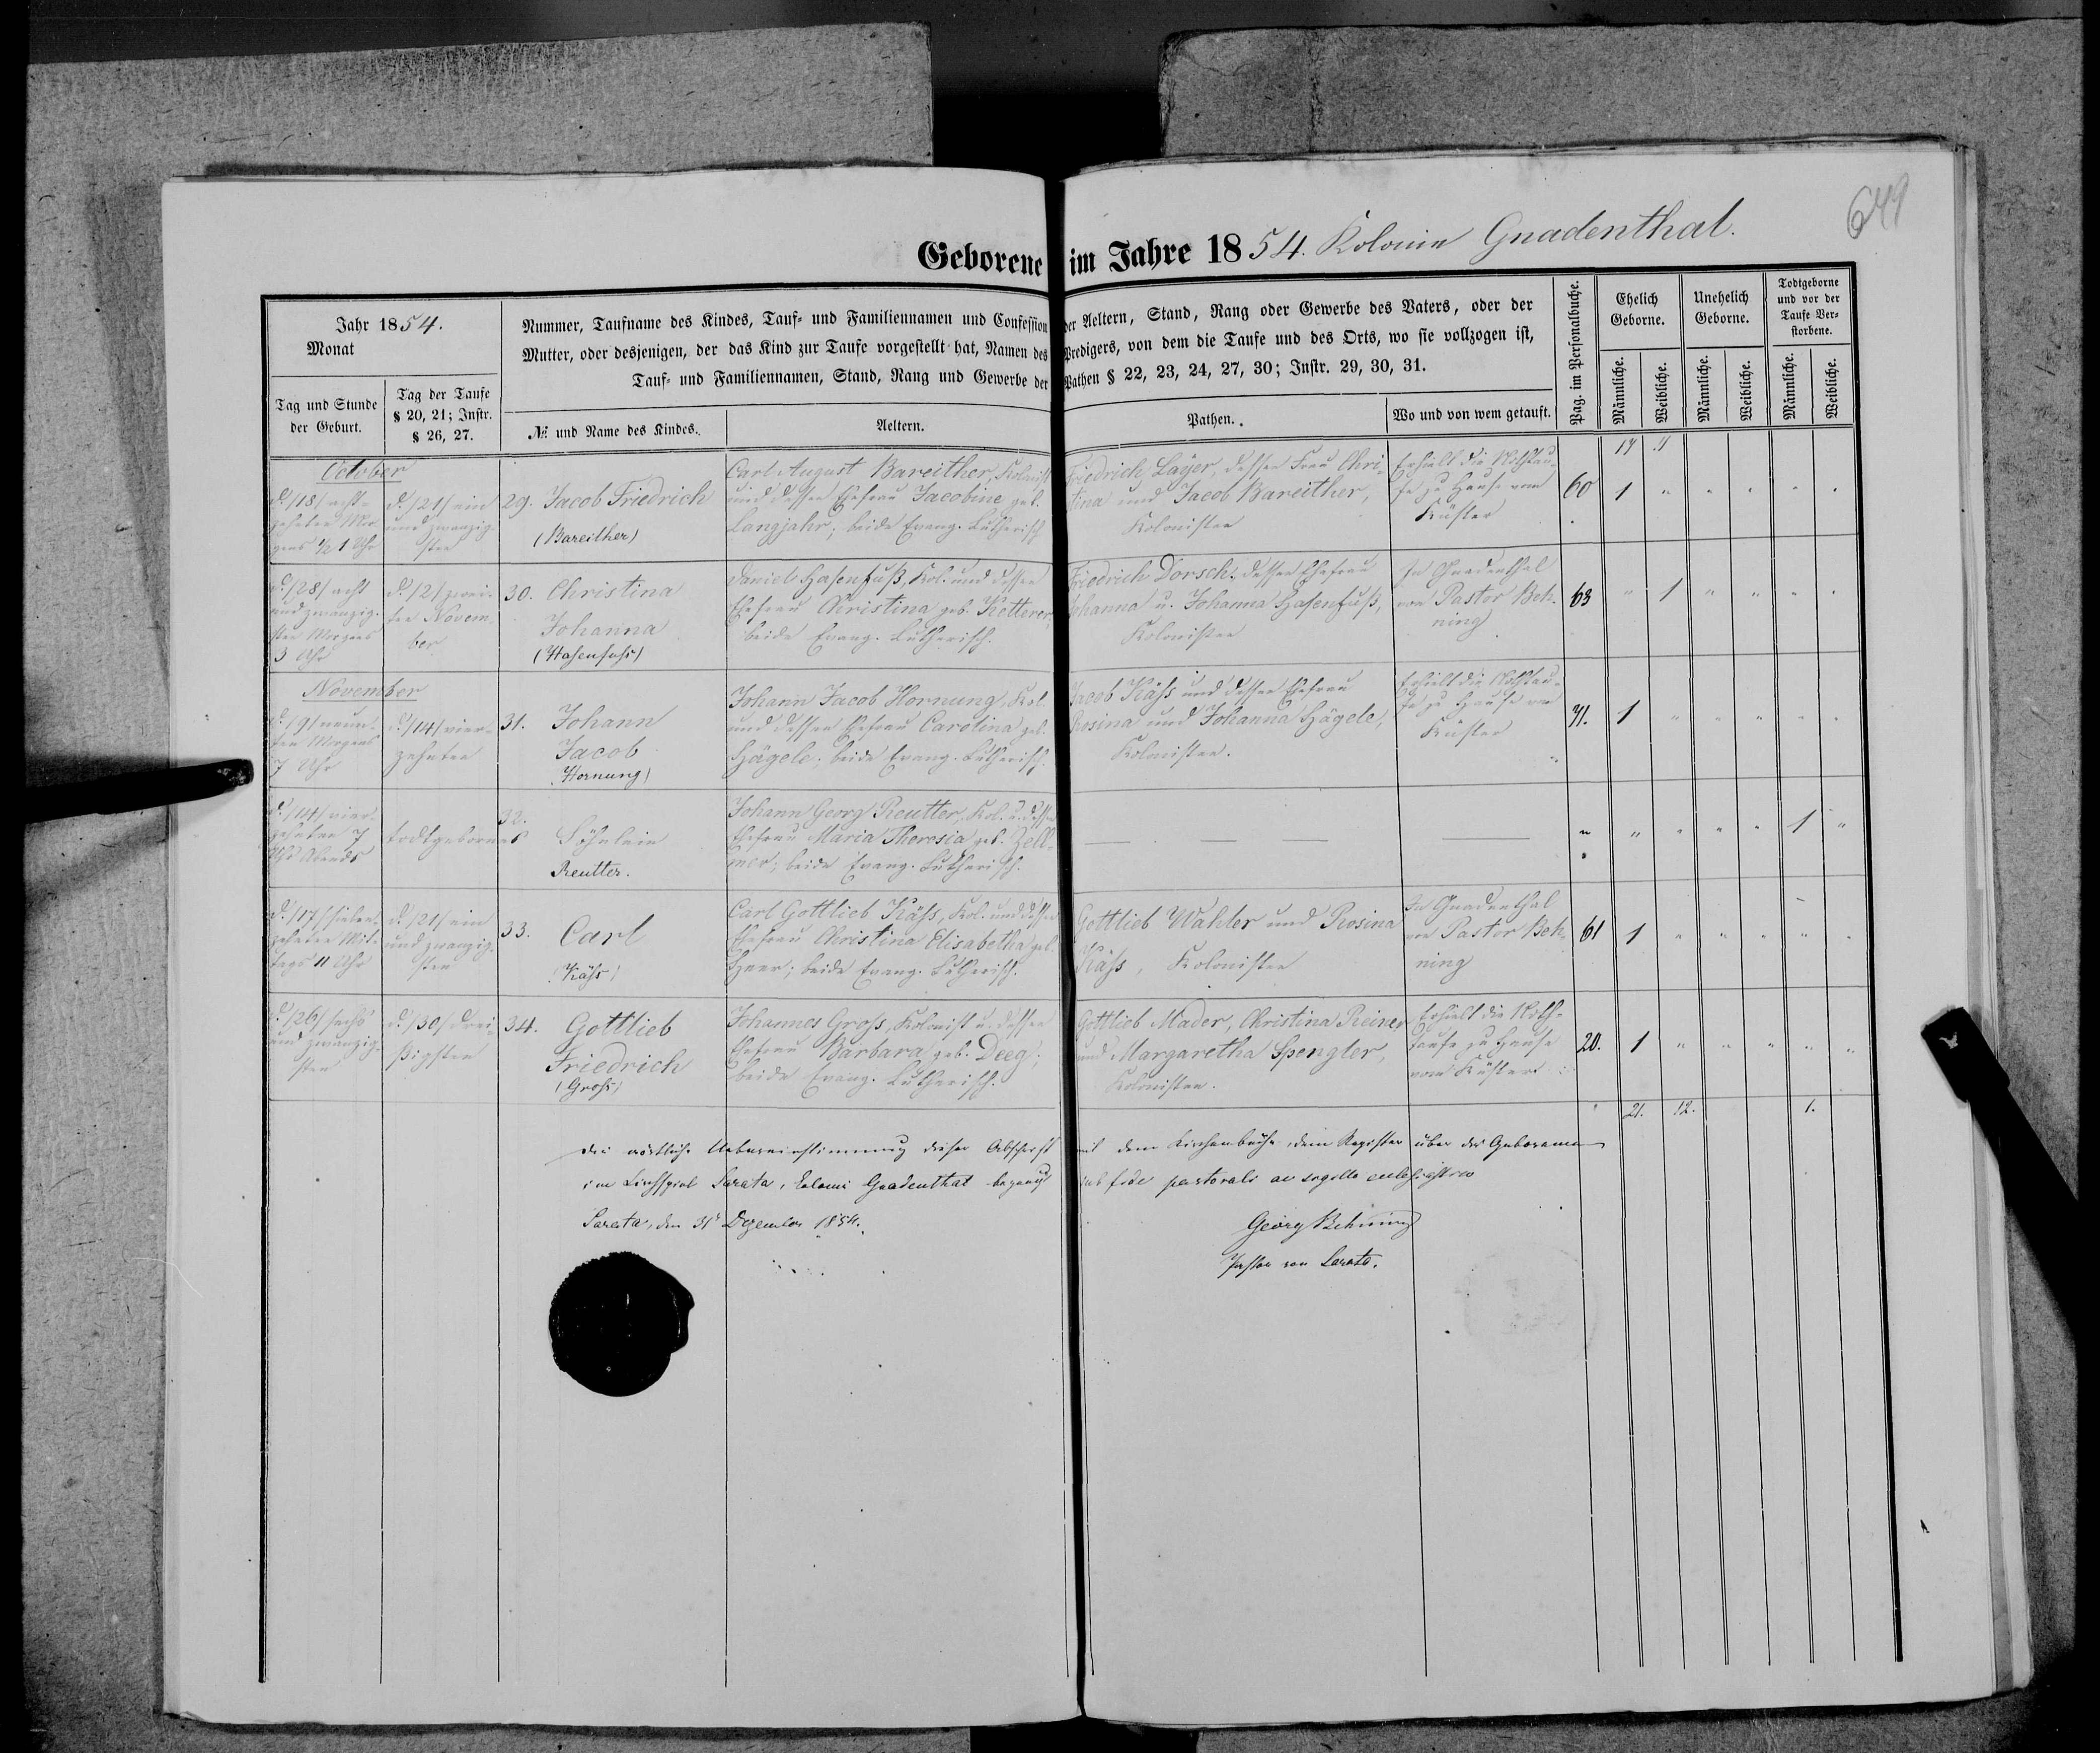 649
Geborene im Jahre 1854. Kolonie Gnadenthal.
Jahr 1854.
Monat
Tag und Stunde
der Geburt.
Tag der Taufe
§ 20, 21; Instr.
§ 26, 27.
Nummer, Taufname des Kindes, Tauf- und Familiennamen und Confession der Aeltern, Stand, Rang oder Gewerbe des Vaters, oder der
Mutter, oder desjenigen, der das Kind zur Taufe vorgestellt hat, Namen des Predigers, von dem die Taufe und des Orts, wo sie vollzogen ist,
Tauf- und Familiennamen, Stand, Rang und Gewerbe der Pathen § 22, 23, 24, 27, 30; Instr. 29, 30, 31.
№ und Name des Kindes.
Aeltern.
Pathen.
Wo und von wem getauft.
Pag. im Personalbuche.
Ehelich
Geborne.
Unehelich
Geborne.
Todtgeborne
und vor der
Taufe Ver-
storbene.
Männliche.
Weibliche.
Männliche.
Weibliche.
Männliche.
Weibliche.
17 11
October
d. /18/ acht-
zehnten Mor-
gens ½ 1 Uhr
d. /21/ ein
und zwanzig-
sten
29. Jacob Friedrich
(Bareither)
Carl August Bareither, Kolonist
und dessen Ehefrau Jacobine geb.
Langjahr; beide Evang. Lutherisch
Friedrich Layer, dessen Frau Chri-
stina und Jacob Bareither,
Kolonisten
Erhielt die Nothtau-
fe zu Hause vom
Küster
60 1 " " " " "
d. /28/ acht
und zwanzig-
sten Morgens
3 Uhr
d. /2/ zwei-
ten Novem-
ber
30. Christina
Johanna
(Hasenfuss)
Daniel Hasenfuß, Kol. und dessen
Ehefrau Christina geb. Ketterer,
beide Evang. Lutherisch.
Friedrich Dorsch, dessen Ehefrau
Johanna u. Johanna Hasenfuß,
Kolonisten
In Gnadenthal
von Pastor Beh-
ning
63 " 1 " " " "
November
d. /9/ neun-
ten Morgens
7 Uhr
d. /14/ vier-
zehnten
31. Johann
Jacob
(Hornung)
Johann Jacob Hornung, Kol.
und dessen Ehefrau Carolina geb.
Hägele; beide Evang. Lutherisch.
Jacob Käss und dessen Ehefrau
Rosina und Johanna Hägele,
Kolonisten.
Erhielt die Nothtau-
fe zu Hause vom
Küster
71. 1 " " " " "
d. /14/ vier-
zehnten 7
Uhr Abends
todtgebornes
32.
Söhnlein
Reutter.
Johann Georg Reutter, Kol. u. dessen
Ehefrau Maria Theresia geb. Zell-
mer; beide Evang. Lutherisch.
" " " " " 1 "
d. /17/ sieben-
zehnten Mit-
tags 11 Uhr
d. /21/ ein
und zwanzig-
sten
33. Carl
(Käss)
Carl Gottlieb Käss, Kol. und dessen
Ehefrau Christina Elisabetha geb.
beide Evang. Lutherisch.
Gottlieb Wahler und Rosina
Käss, Kolonisten
In Gnadenthal
von Pastor Beh-
ning
61 1 " " " " "
d. /26/ sechs
und zwanzig-
sten
d. /30/ drei-
ßigsten
34. Gottlieb
Friedrich
(Gross)
Johannes Gross, Kolonist u. dessen
Ehefrau Barbara geb. Deeg;
beide Evang. Lutherisch.
Gottlieb Mader, Christina Reiner
und Margaretha Spengler,
Kolonisten.
Erhielt die Noth-
taufe zu Hause
vom Küster
20. 1 " " " " "
" 21. 12. 1.
Die wörtliche Uebereinstimmung dieser Abschrift mit dem Kirchenbuche, dem Register über die Geborenen
im Kirchspiel Sarata, Colonie Gnadenthal bezeugt sub fide pastorali ac sigillo ecclesiastico
Sarata, den 31t Dezember 1854.
Georg Behning
Pastor von Sarata.